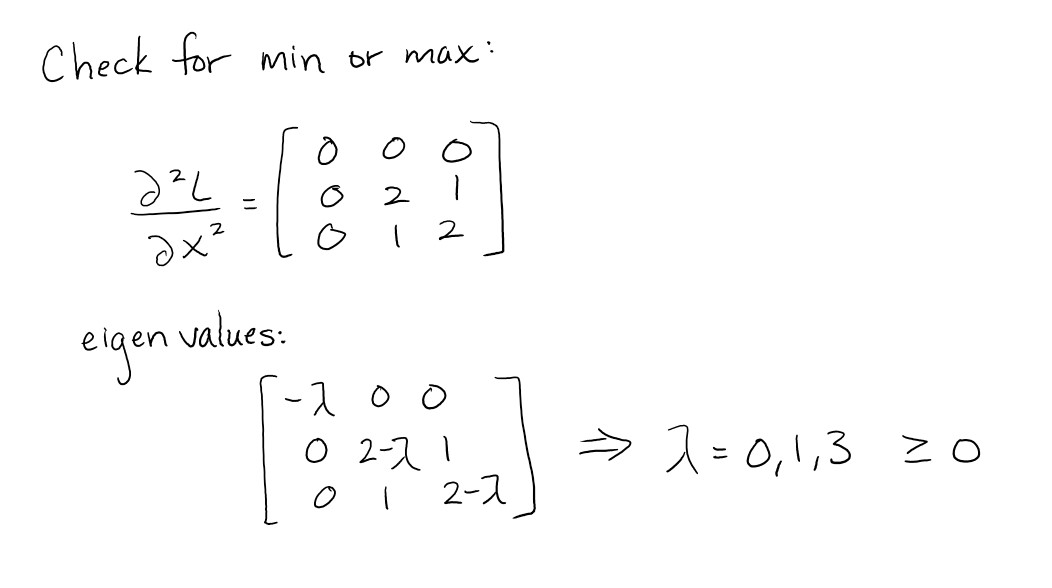 Check for min or max:
∂²L/∂x² = [0 0 0; 0 2 1; 0 1 2]
eigen values:
[-λ 0 0; 0 2-λ 1; 0 1 2-λ] ⇒ λ = 0,1,3 ≥ 0